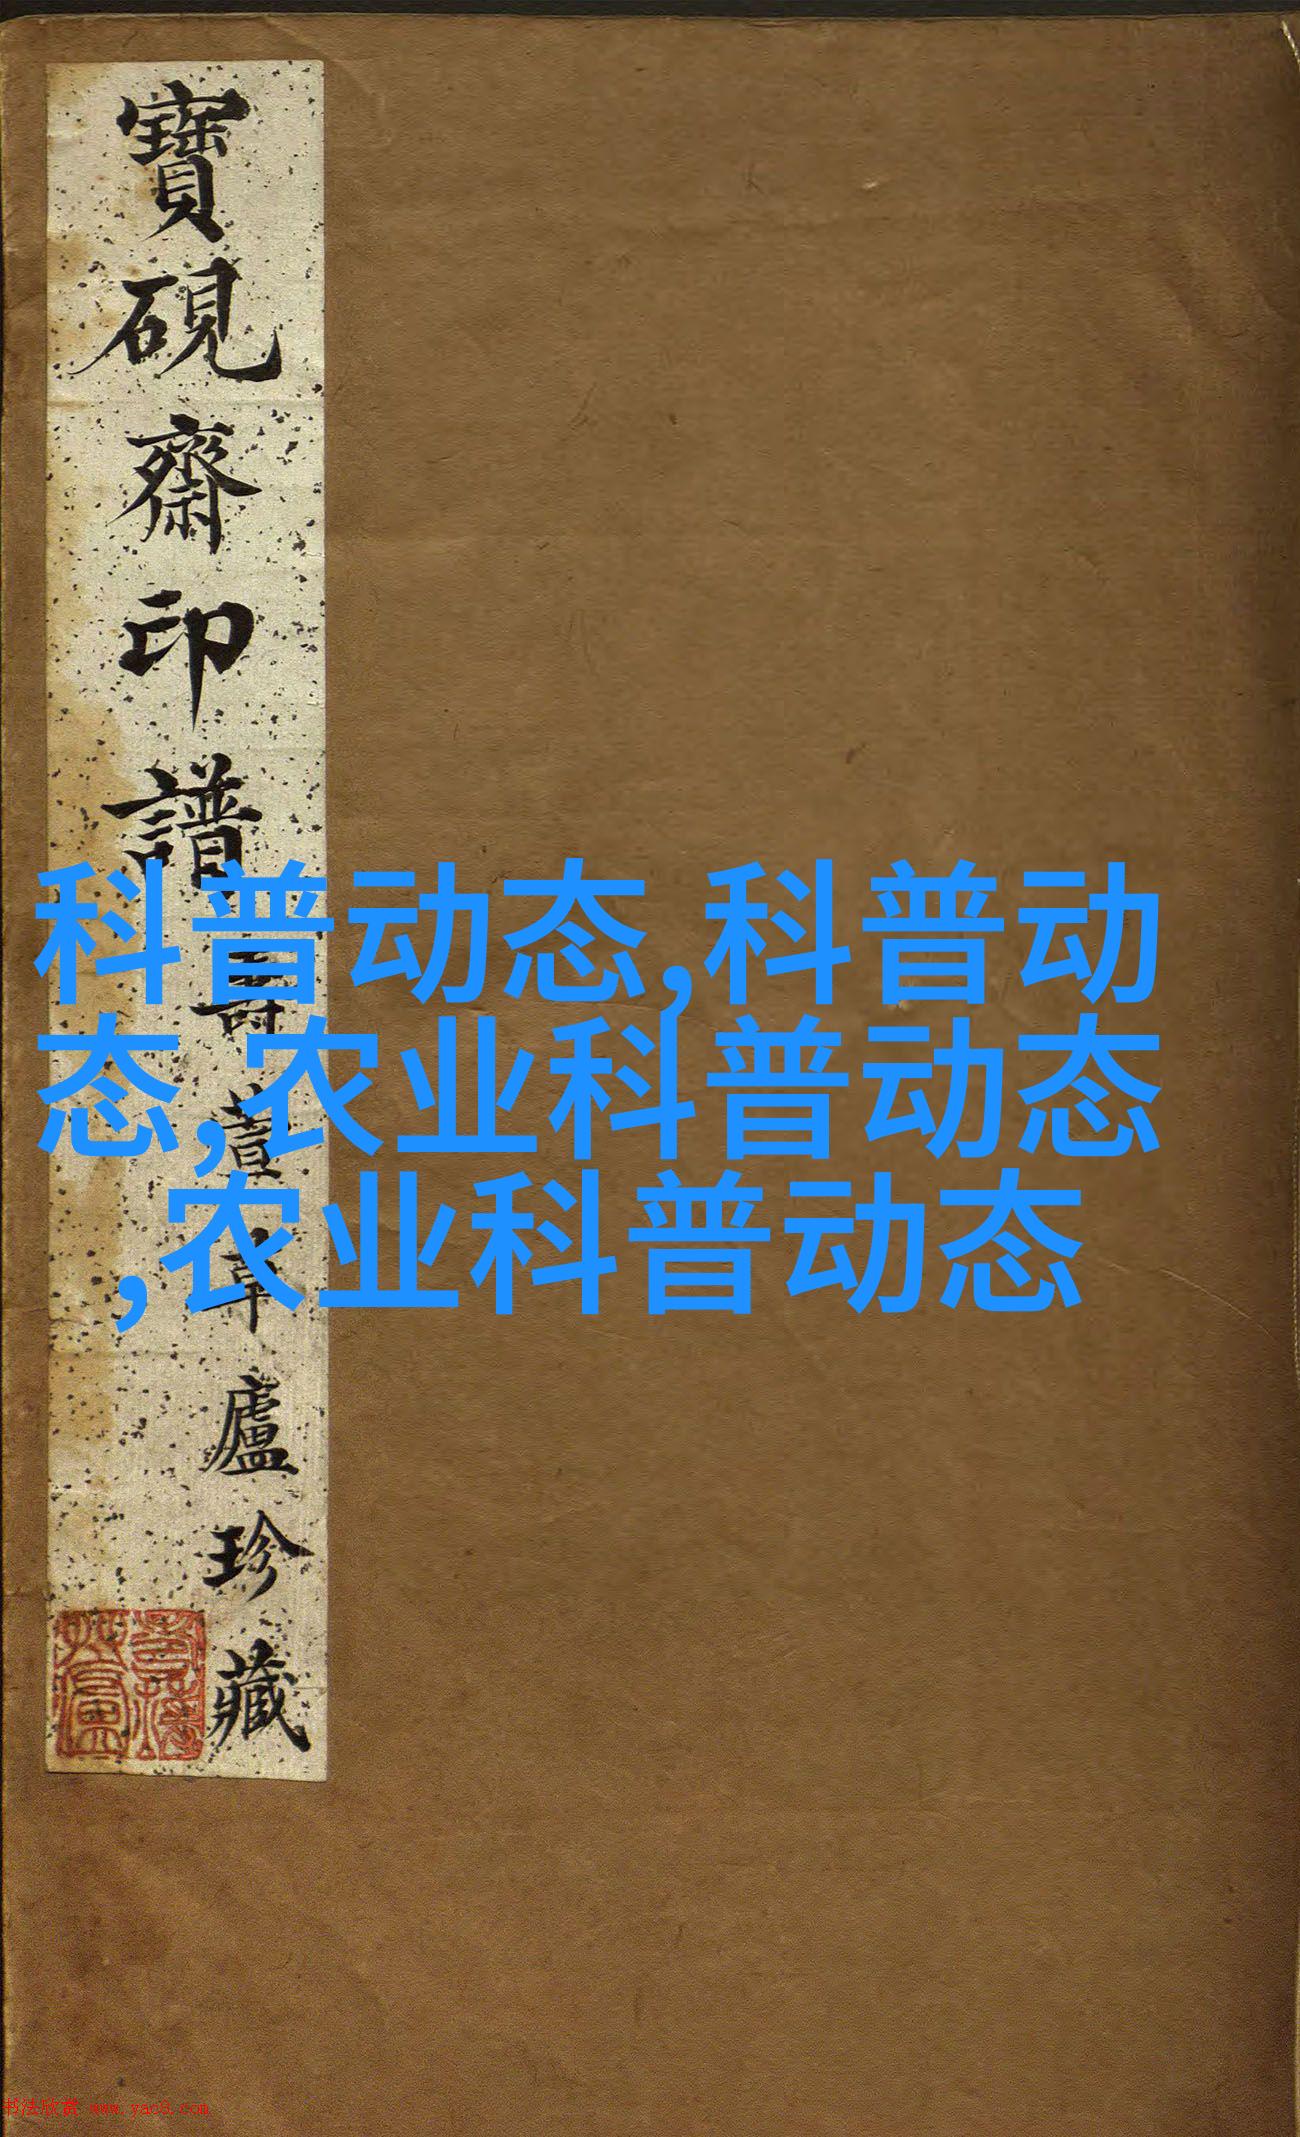 寶硯齋印譜
壽萱草廬珍藏
科普动态,科普动
态,农业科普动态
,农业科普动态
书法欣赏 www.yac8.com